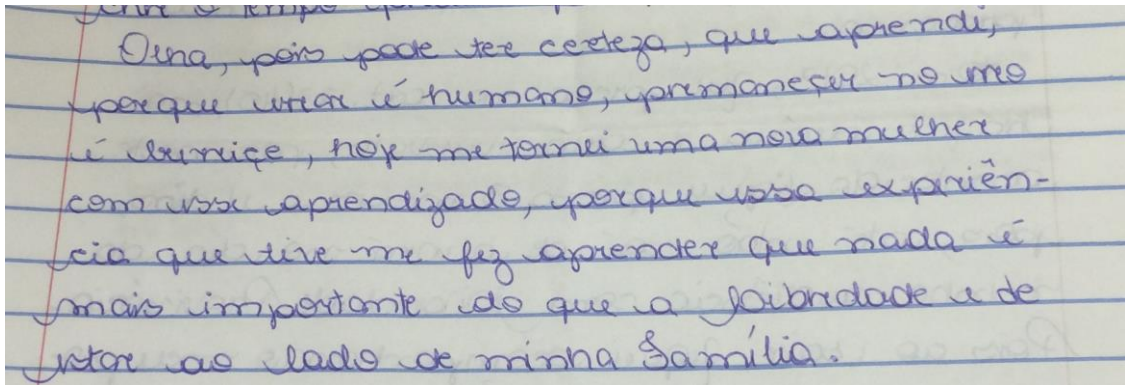 Olha, pois pode ter certeza, que aprendi,
porque errar é humano, premaneçer no erro
é burriçe, hoje me tornei uma nova mulher
com esse aprendizado, porque essa expriên-
cia que tive me fez aprender que nada é
mais importante do que a loibredade e de
estar ao lado de minha família.